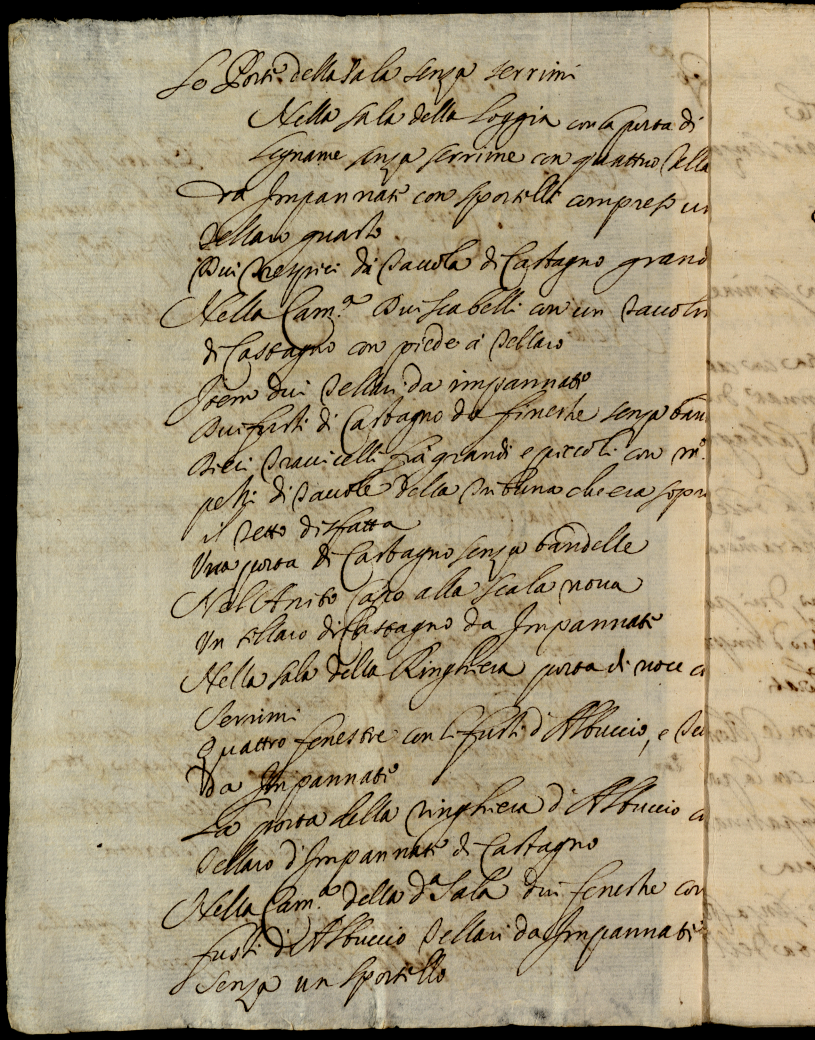 Le Porte della Sala senza serrimi
Nella sala della Loggia con la porta di
legname senza serrime con quattro Tella
ra Impannate con sportelli compreso un
Tellaro guasto
Dui Trespici di Tavola di Castagno grand
Nella Cam.ª Dui scabelli con un Tavolin
di Castagno con piede a Tellaro
Item dui Tellari da impannate
Dui fusti di Castagno da finestre senza ban
Dieci Travicelli frà grandi e piccoli con m.
pezzi di Tavole della Tribuna che era sopra
il letto disfatta
Una porta di Castagno senza bandelle
Nell'Anito capo alla scala nova
Un tellaro di Castagno da Impannate
Nella sala della Ringhiera porta di noce c
Serrimi
Quattro fenestre con li fusti d'Albuccio, e Tel
da Impannate
La porta della ringhiera d'Albuccio c
Tellaro d'Impannate di Castagno
Nella Cam.ª della d.ª Sala dui fenestre con
fusti d'Albuccio Tellari da Impannate
Senza un sportello